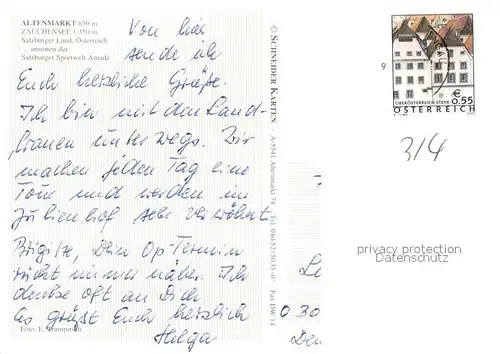 ALTENMARKT 850 m
ZAUCHENSEE 1.350 m
Salzburger Land, Österreich
... inmitten der
Salzburger Sportwelt Amadé
Von hier
sende ich
Euch herzliche Grüße.
Ich bin mit den Land-
frauen unterwegs. Wir
machen jeden Tag eine
Tour und werden im
sehr verwöhnt.
Brigitte, Dein Op-Termin
rückt immer näher. Ich
denke oft an Dich
Es grüßt Euch herzlich
Helga
Foto: E.
© SCHNEIDER KARTEN · A-5541 Altenmarkt 74 · Tel. 06452/5035-0 Fax DW 14
9
€
0.55
OBERÖSTERREICH STEYR
ÖSTERREICH
3/4
privacy protection
Datenschutz
0 30